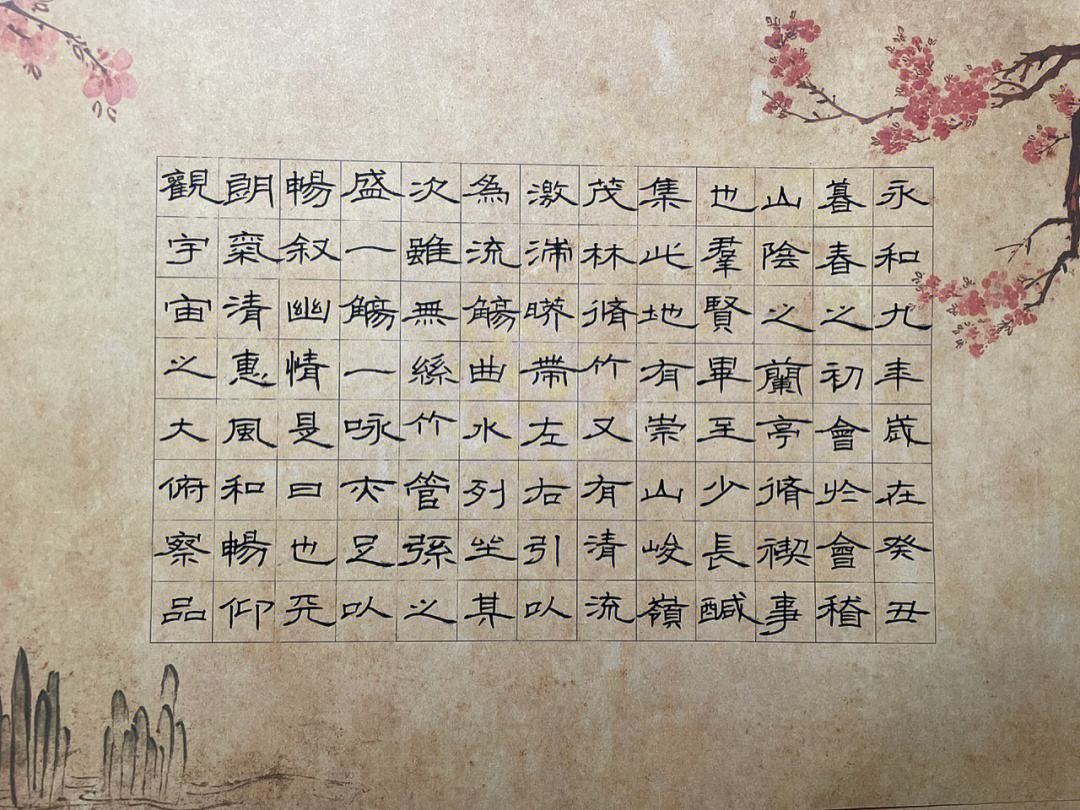 永和九年歲在癸丑
暮春之初會於會稽
山陰之蘭亭脩禊事
也羣賢畢至少長醎
集此地有崇山峻嶺
茂林脩竹又有清流
激湍暎帶左右引以
為流觴曲水列坐其
次雖無絲竹管弦之
盛一觴一咏亦足以
暢叙幽情是日也天
朗氣清惠風和暢仰
觀宇宙之大俯察品